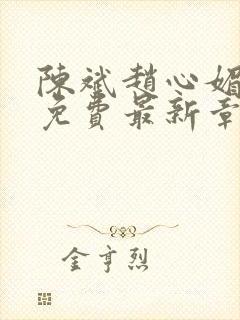 陳斌趙心媚
免費最新章
金亨烈